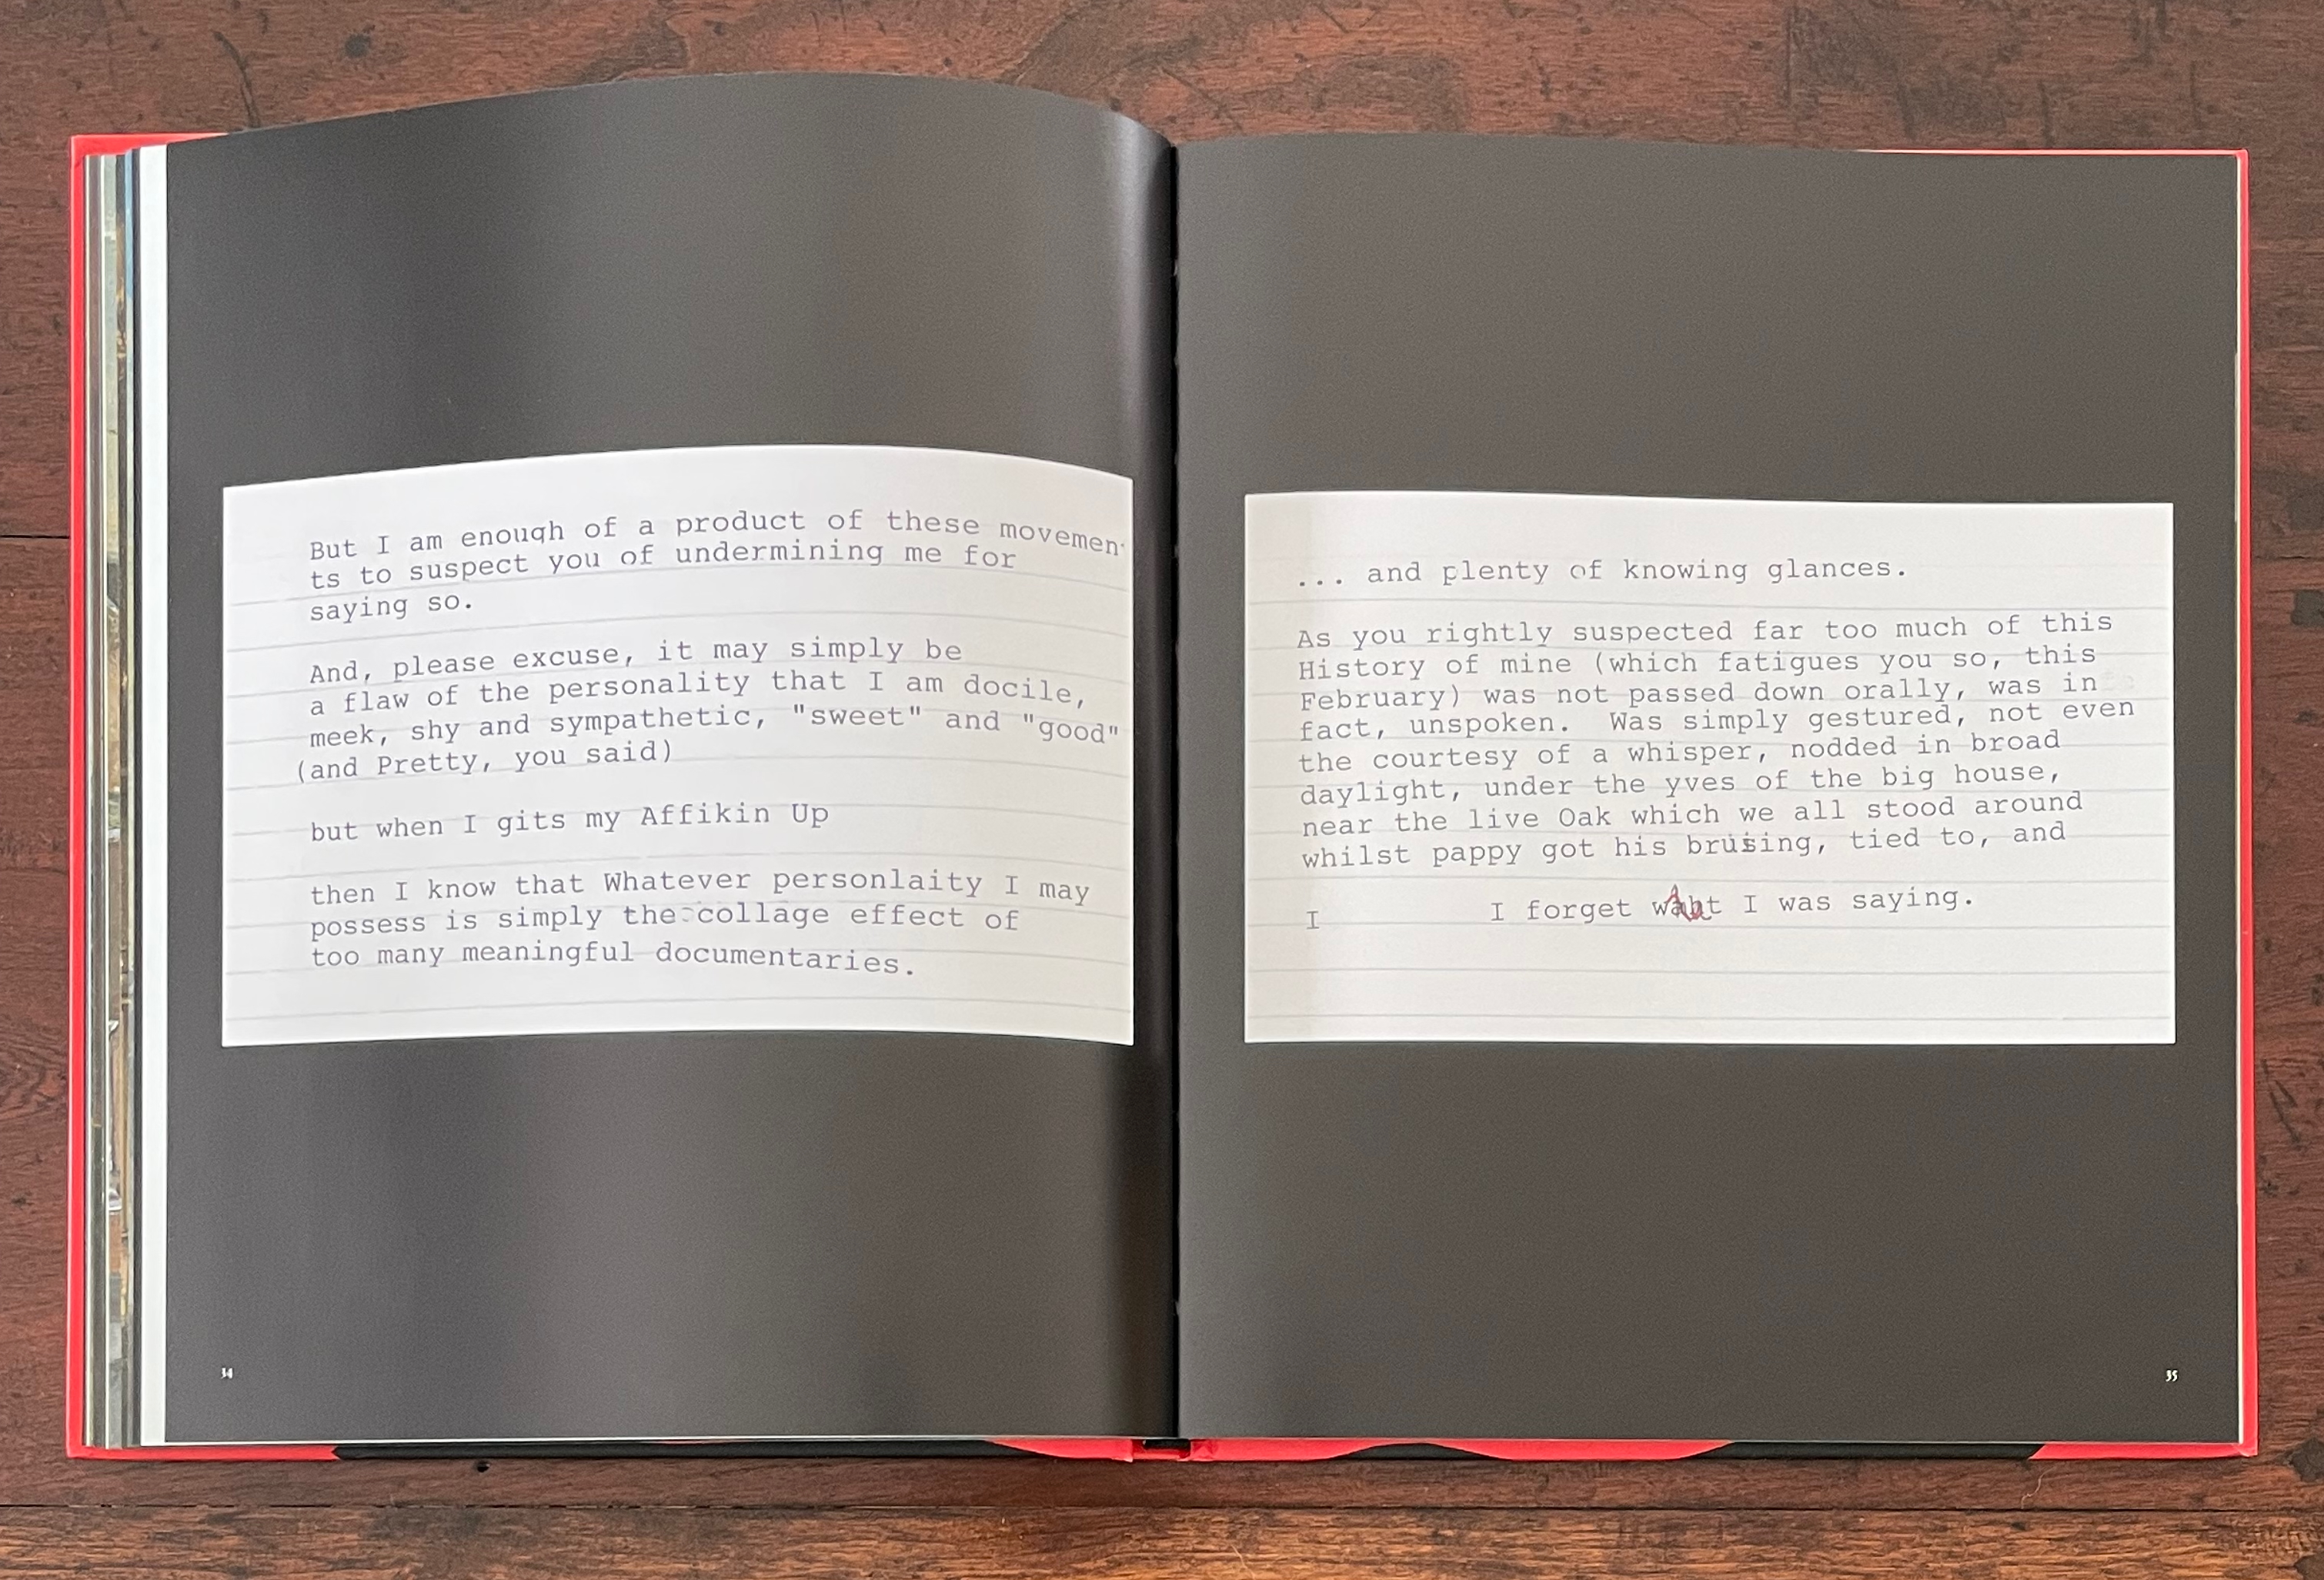 But I am enough of a product of these movemen
ts to suspect you of undermining me for
saying so.
And, please excuse, it may simply be
a flaw of the personality that I am docile,
meek, shy and sympathetic, "sweet" and "good"
(and Pretty, you said)
but when I gits my Affikin Up
then I know that Whatever personlaity I may
possess is simply the collage effect of
too many meaningful documentaries.
34
... and plenty of knowing glances.
As you rightly suspected far too much of this
History of mine (which fatigues you so, this
February) was not passed down orally, was in
fact, unspoken. Was simply gestured, not even
the courtesy of a whisper, nodded in broad
daylight, under the yves of the big house,
near the live Oak which we all stood around
whilst pappy got his brusing, tied to, and
I I forget waht I was saying.
35